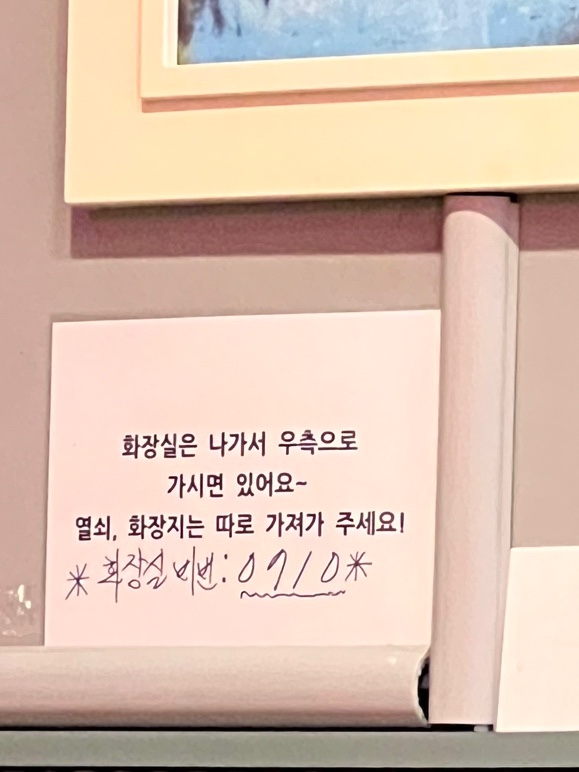 화장실은 나가서 우측으로
가시면 있어요~
열쇠, 화장지는 따로 가져가 주세요!
* 화장실 비번: 0910 *